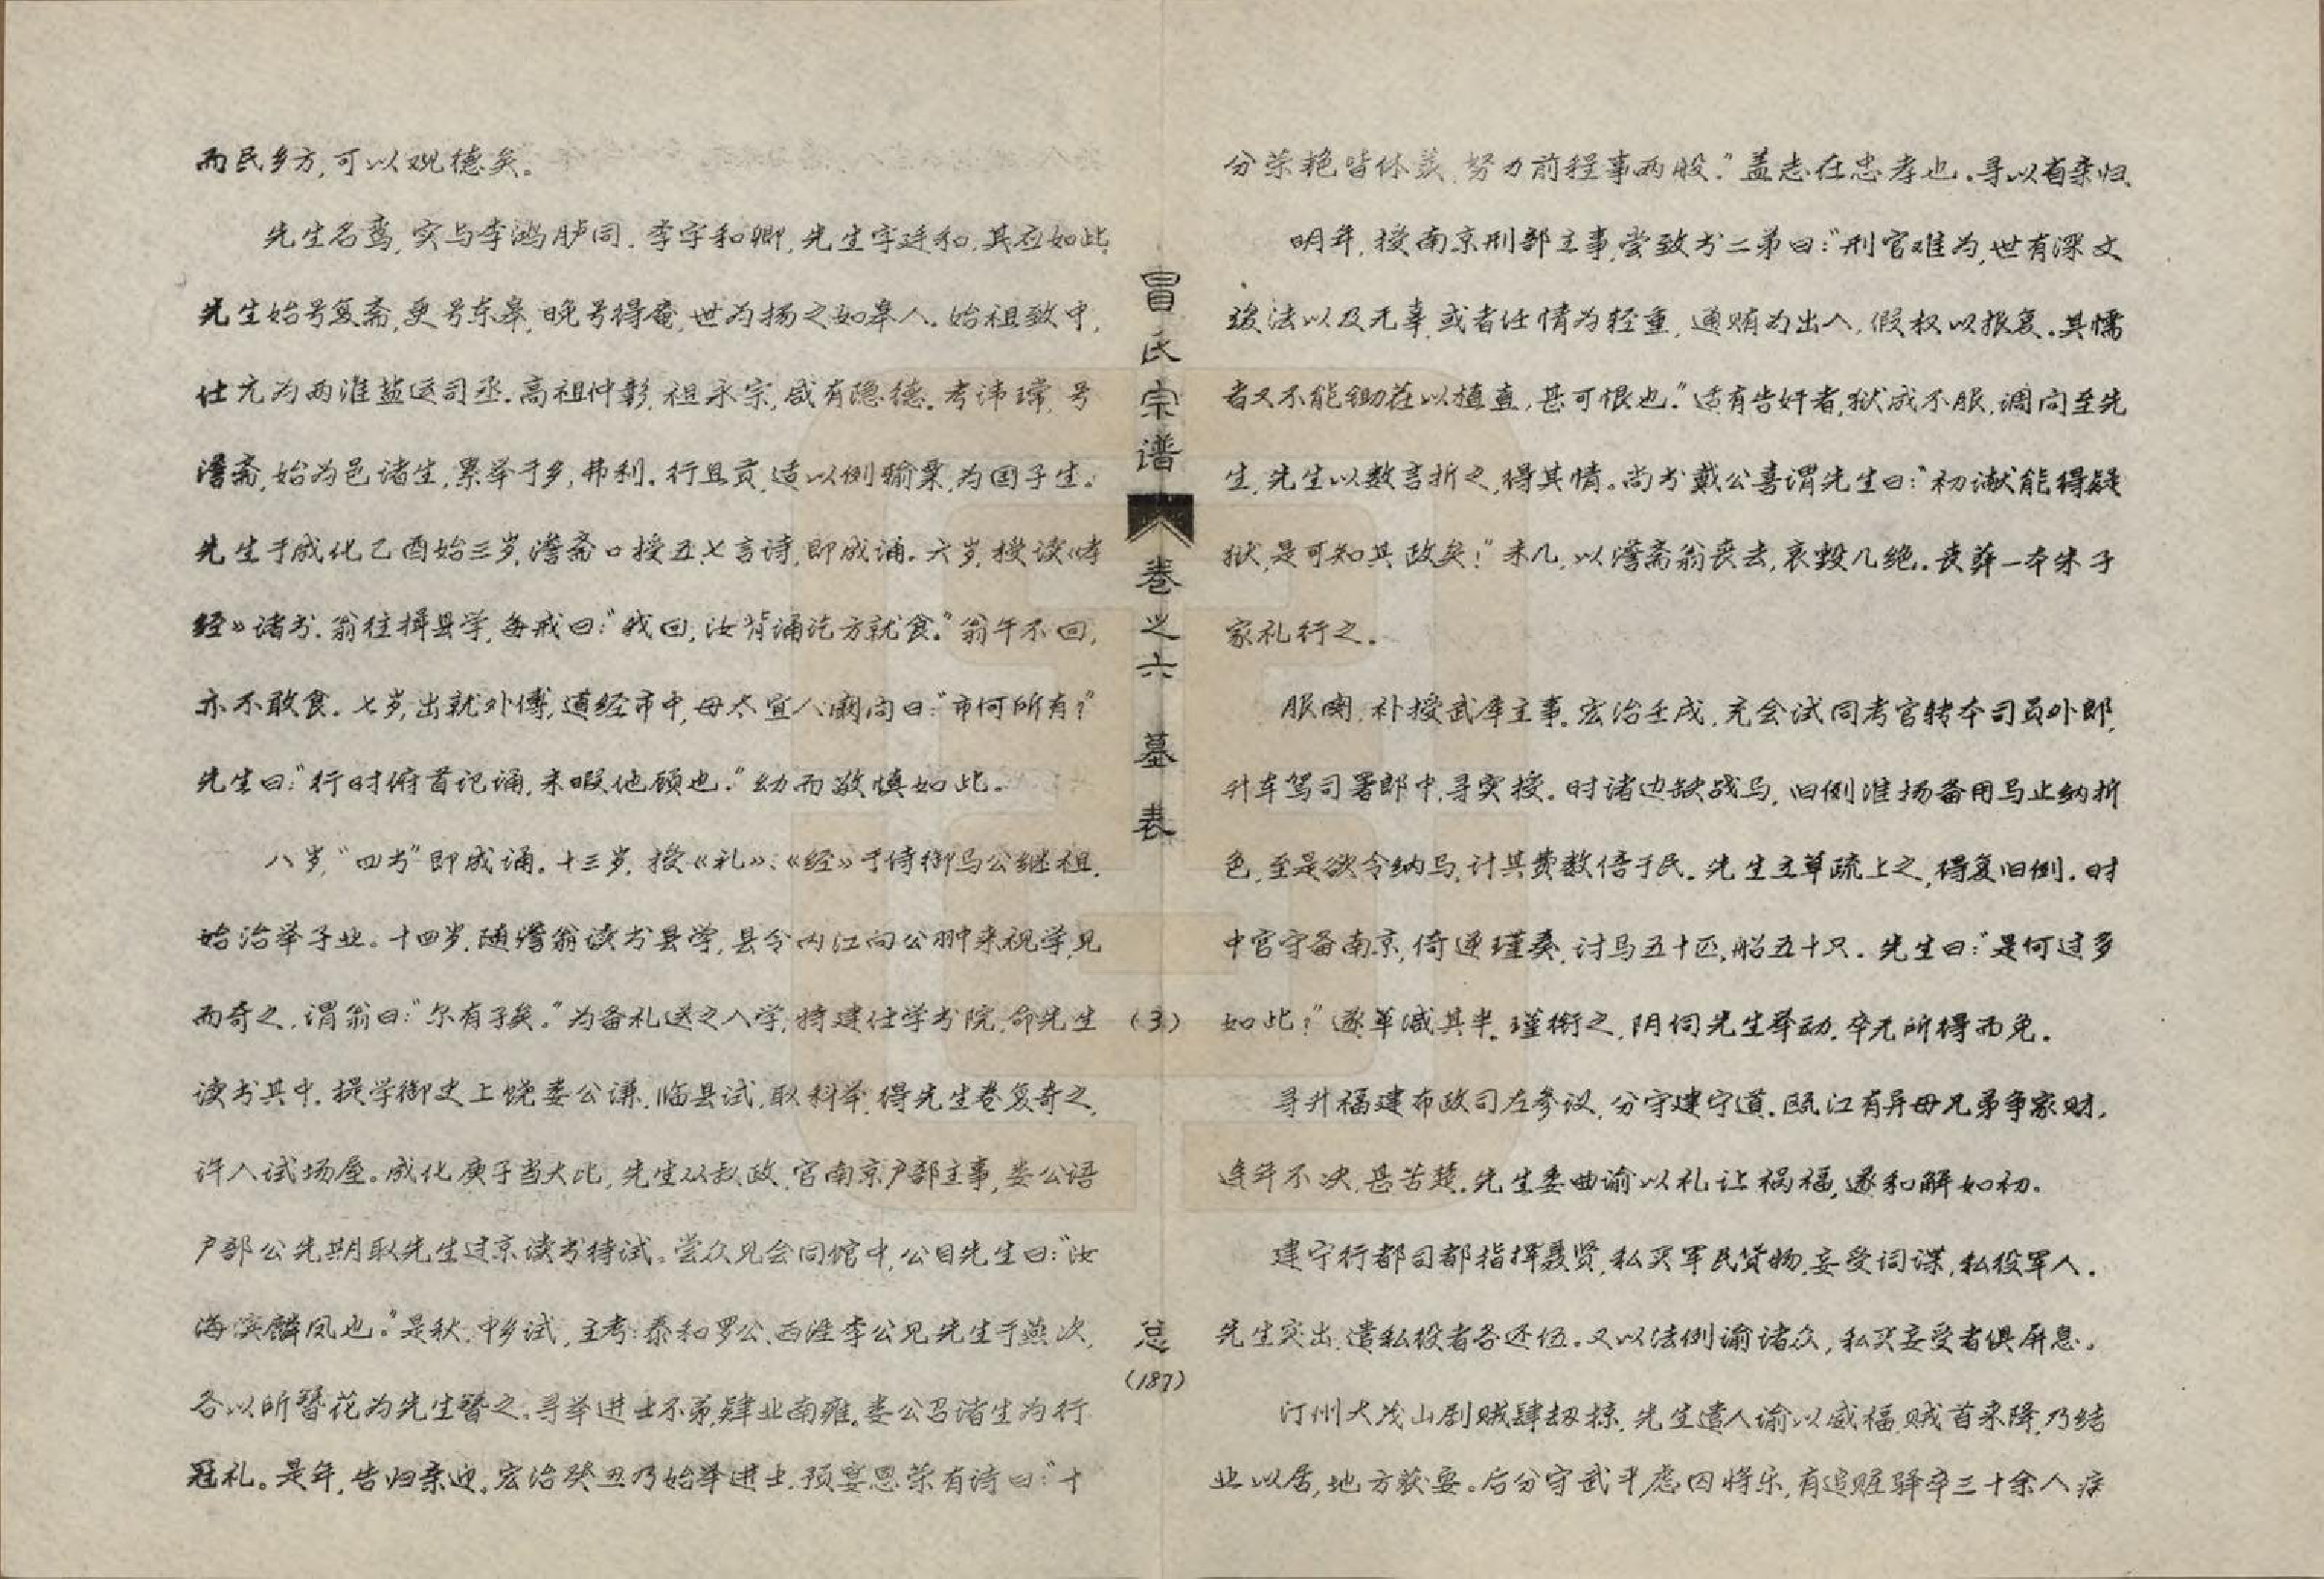 而民乡方,可以观德矣。
先生名鸾,实与李鸿胪同.李字和卿,先生字廷和,其应如此,
先生始号复斋,更号东皋,晚号得庵,世为扬之如皋人.始祖致中,
仕元为两淮盐运司丞.高祖仲彰,祖永宗,咸有隐德.考讳瑺,号
潜斋,始为邑诸生,累举于乡,弗利.行且贡,适以例输粟,为国子生.
先生于成化乙酉始三岁,潜斋口授五、七言诗,即成诵.六岁,授读《孝
经》诸书.翁往揖县学,每戒曰:“我回,汝背诵讫方就食.”翁午不回,
亦不敢食.七岁,出就外傅,道经市中,母太宜人阚问曰:“市何所有?”
先生曰:“行时俯首记诵,未暇他顾也.”幼而敬慎如此.
八岁,“四书”即成诵.十三岁,授《礼》、《经》于侍御马公继祖,
始治举子业。十四岁,随潜翁读书县学,县令内江向公翀来视学,见
而奇之,谓翁曰:“尔有子矣.”为备礼送之入学,特建仕学书院,命先生
读书其中.提学御史上饶娄公谦,临县试,取科举,得先生卷复奇之,
许入试场屋。成化庚子当大比,先生从叔政,官南京户部主事,娄公语
户部公先期取先生过京读书待试。尝众见会同馆中,公目先生曰:“汝
海滨麟凤也.”是秋,中乡试,主考:泰和罗公、西涯李公见先生于燕次,
各以所簪花为先生簪之.寻举进士不第,肄业南雍.娄公召诸生为行
冠礼。是年,告归亲迎.宏治癸丑乃始举进士.预宴恩荣有诗曰:“十
冒氏宗谱
卷之六 墓表
(3)
总
(187)
分荣艳皆休羡,努力前程事两般.”盖志在忠孝也.寻以省亲归.
明年,授南京刑部主事,尝致书二弟曰:“刑官难为,世有深文
竣法以及无辜,或者任情为轻重,通贿为出入,假权以报复.其懦
者又不能锄荘以植直,甚可恨也.”适有告奸者,狱成不服,调问至先
生,先生以数言折之,得其情。尚书戴公喜谓先生曰:“初谳能得疑
狱,是可知其政矣!”未几,以潜斋翁丧去,哀毁几绝.丧葬一本朱子
家礼行之.
服阕,补授武库主事.宏治壬戌,充会试同考官转本司员外郎,
升车驾司署郎中,寻实授.时诸边缺战马,旧例淮扬备用马止纳折
色,至是欲令纳马,计其费数倍于民.先生主草疏上之,得复旧例.时
中官守备南京,倚逆瑾奏,讨马五十匹,船五十只.先生曰:“是何过多
如此?”遂革减其半.瑾衔之,阴伺先生举动,卒无所得而免.
寻升福建布政司左参议,分守建宁道.瓯江有异母兄弟争家财,
连年不决,甚苦楚.先生委曲谕以礼让祸福,遂和解如初.
建宁行都司都指挥聂贤,私买军民货物,妄受词谍,私役军人.
先生突出,遣私役者各还伍.又以法例谕诸众,私买妄受者俱屏息.
汀州大茂山剧贼肆劫掠,先生遣人谕以威福,贼首来降,乃结
业以居,地方获安。后分守武平虑囚将乐,有追赃驿卒三十余人疾